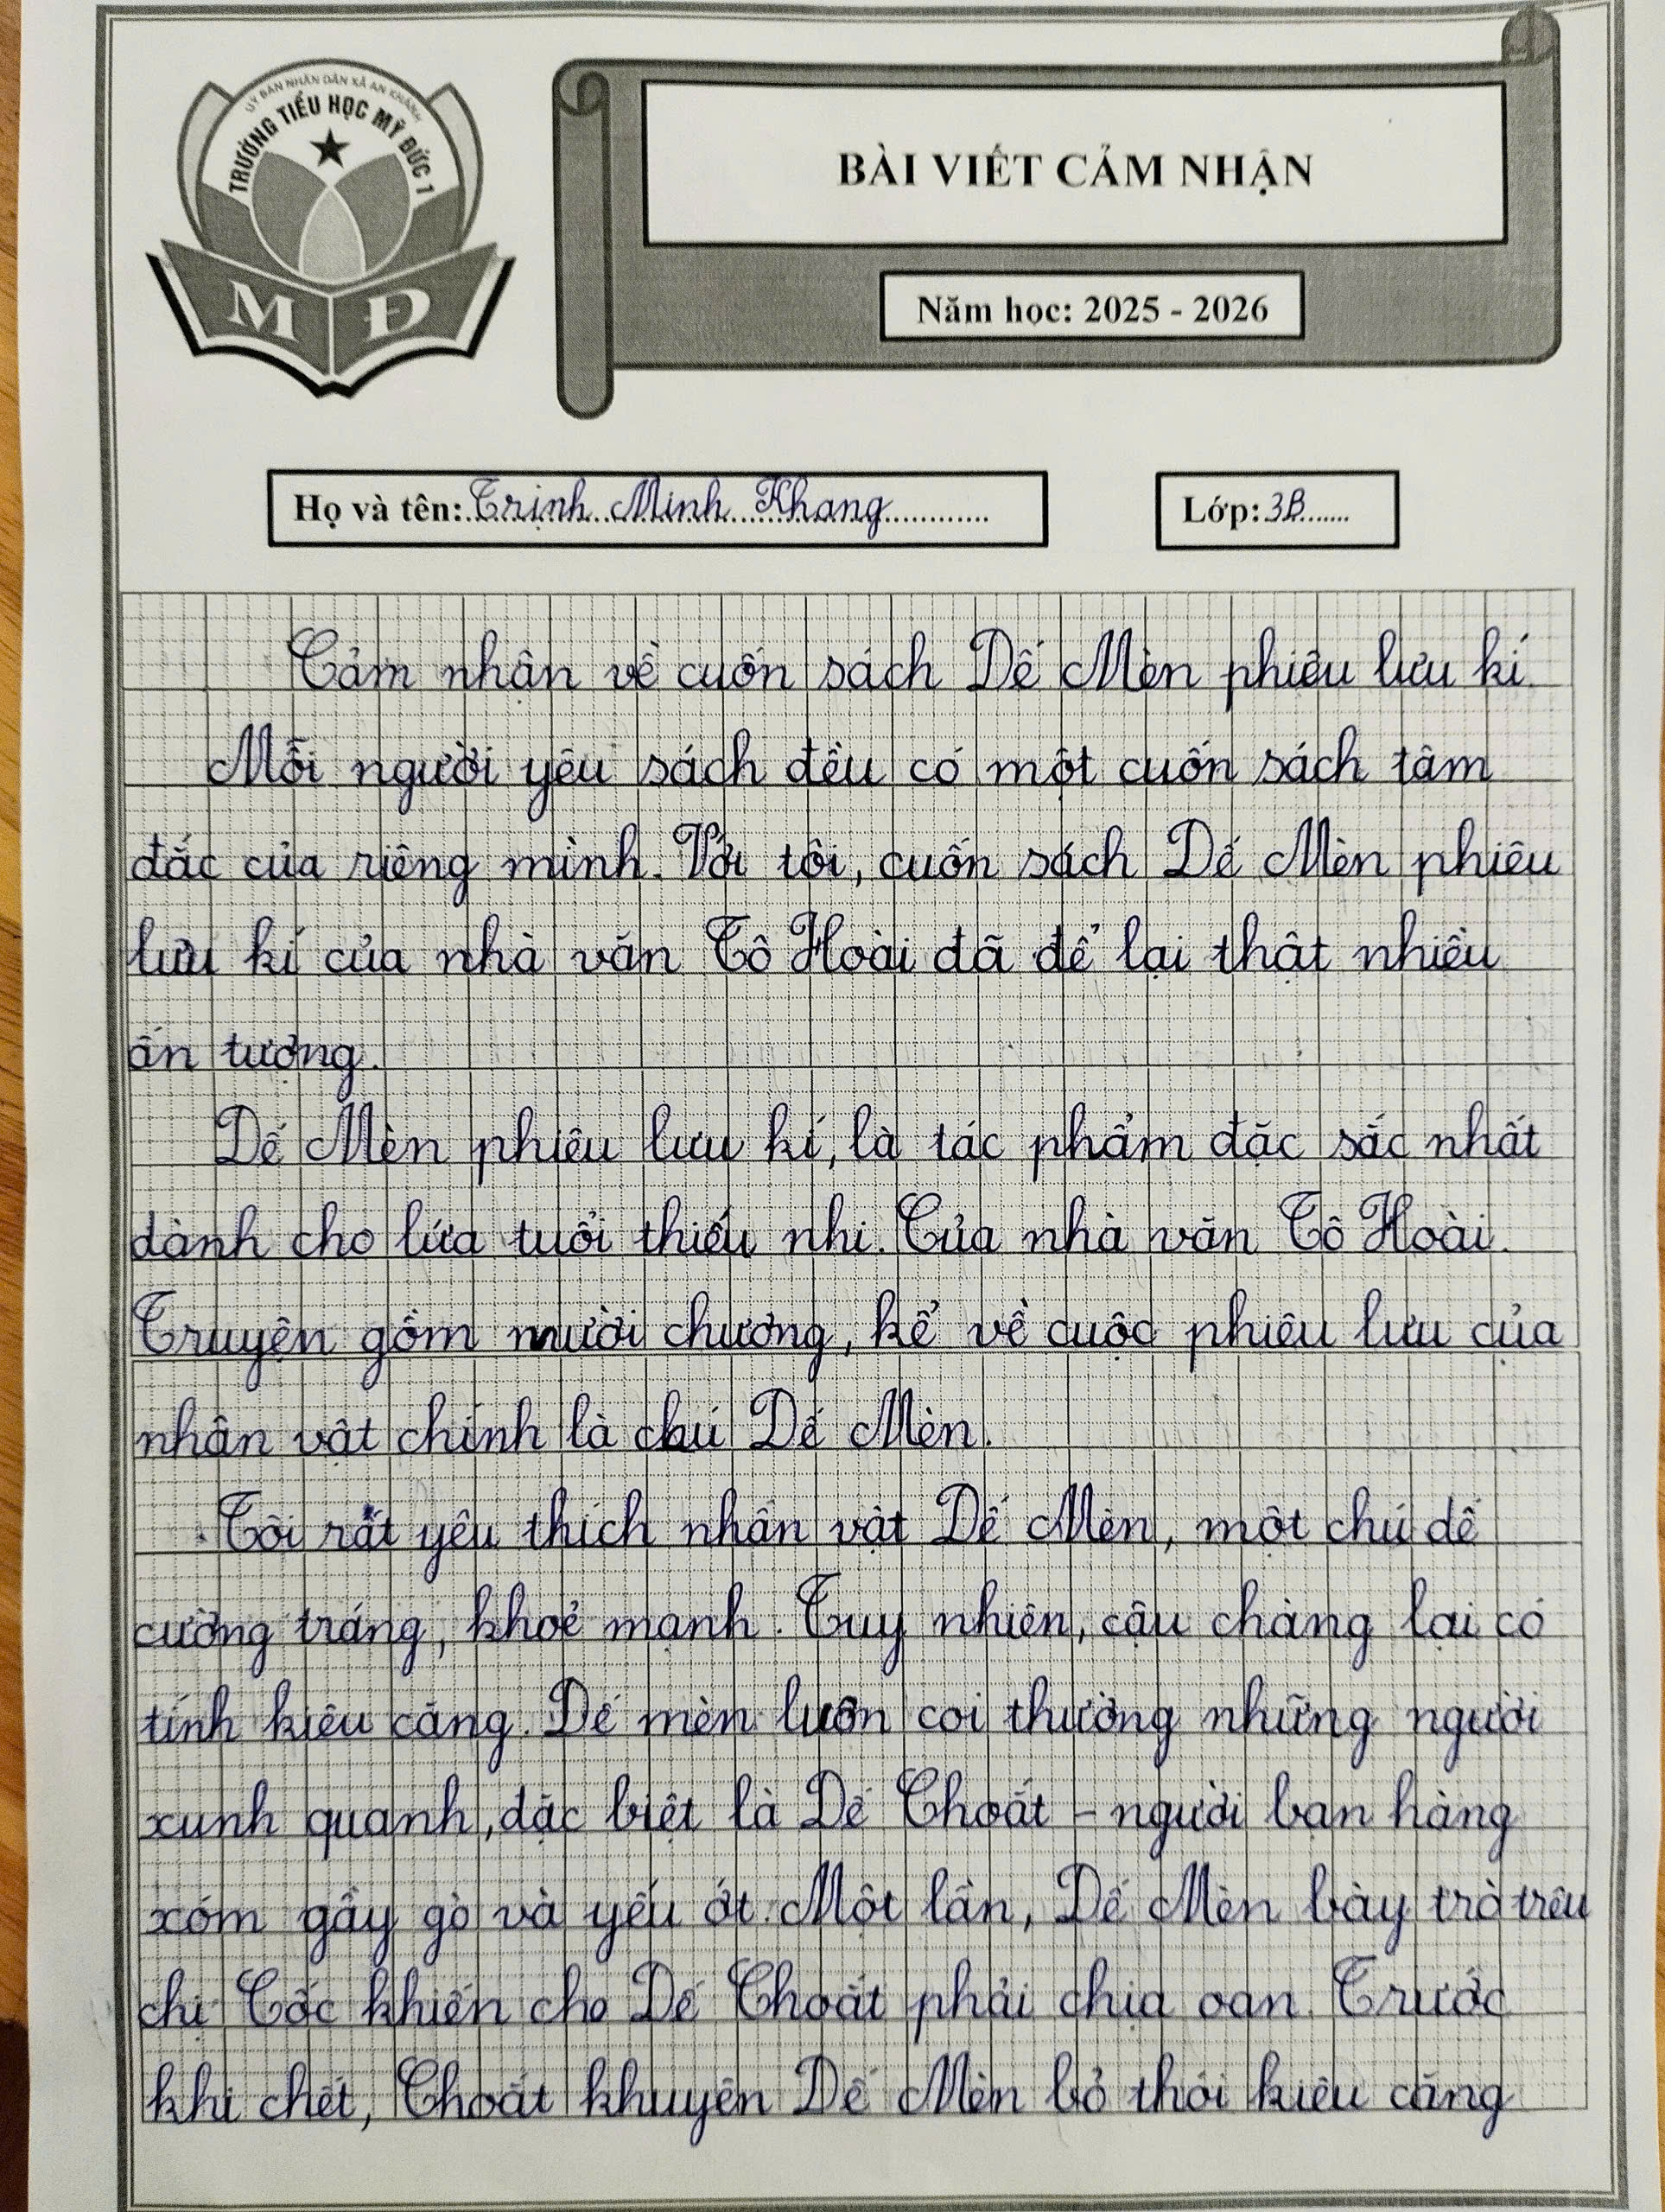 UỶ BAN NHÂN DÂN XÃ AN KHÁNH
TRƯỜNG TIỂU HỌC MỸ ĐỨC 1
M Đ
BÀI VIẾT CẢM NHẬN
Năm học: 2025 - 2026
Họ và tên: Trịnh Minh Khang
Lớp: 3B
Cảm nhận về cuốn sách Dế Mèn phiêu lưu kí.
Mỗi người yêu sách đều có một cuốn sách tâm
đắc của riêng mình. Với tôi, cuốn sách Dế Mèn phiêu
lưu kí của nhà văn Tô Hoài đã để lại thật nhiều
ấn tượng.
Dế Mèn phiêu lưu kí, là tác phẩm đặc sắc nhất
dành cho lứa tuổi thiếu nhi. Của nhà văn Tô Hoài.
Truyện gồm mười chương, kể về cuộc phiêu lưu của
nhân vật chính là chú Dế Mèn.
Tôi rất yêu thích nhân vật Dế Mèn, một chú dế
cường tráng, khoẻ mạnh. Tuy nhiên, cậu chàng lại có
tính kiêu căng. Dế mèn luôn coi thường những người
xunh quanh, đặc biệt là Dế Choắt – người bạn hàng
xóm gầy gò và yếu ớt. Một lần, Dế Mèn bày trò trêu
chị Cốc khiến cho Dế Choắt phải chịa oan. Trước
khi chết, Choắt khuyên Dế Mèn bỏ thói kiêu căng